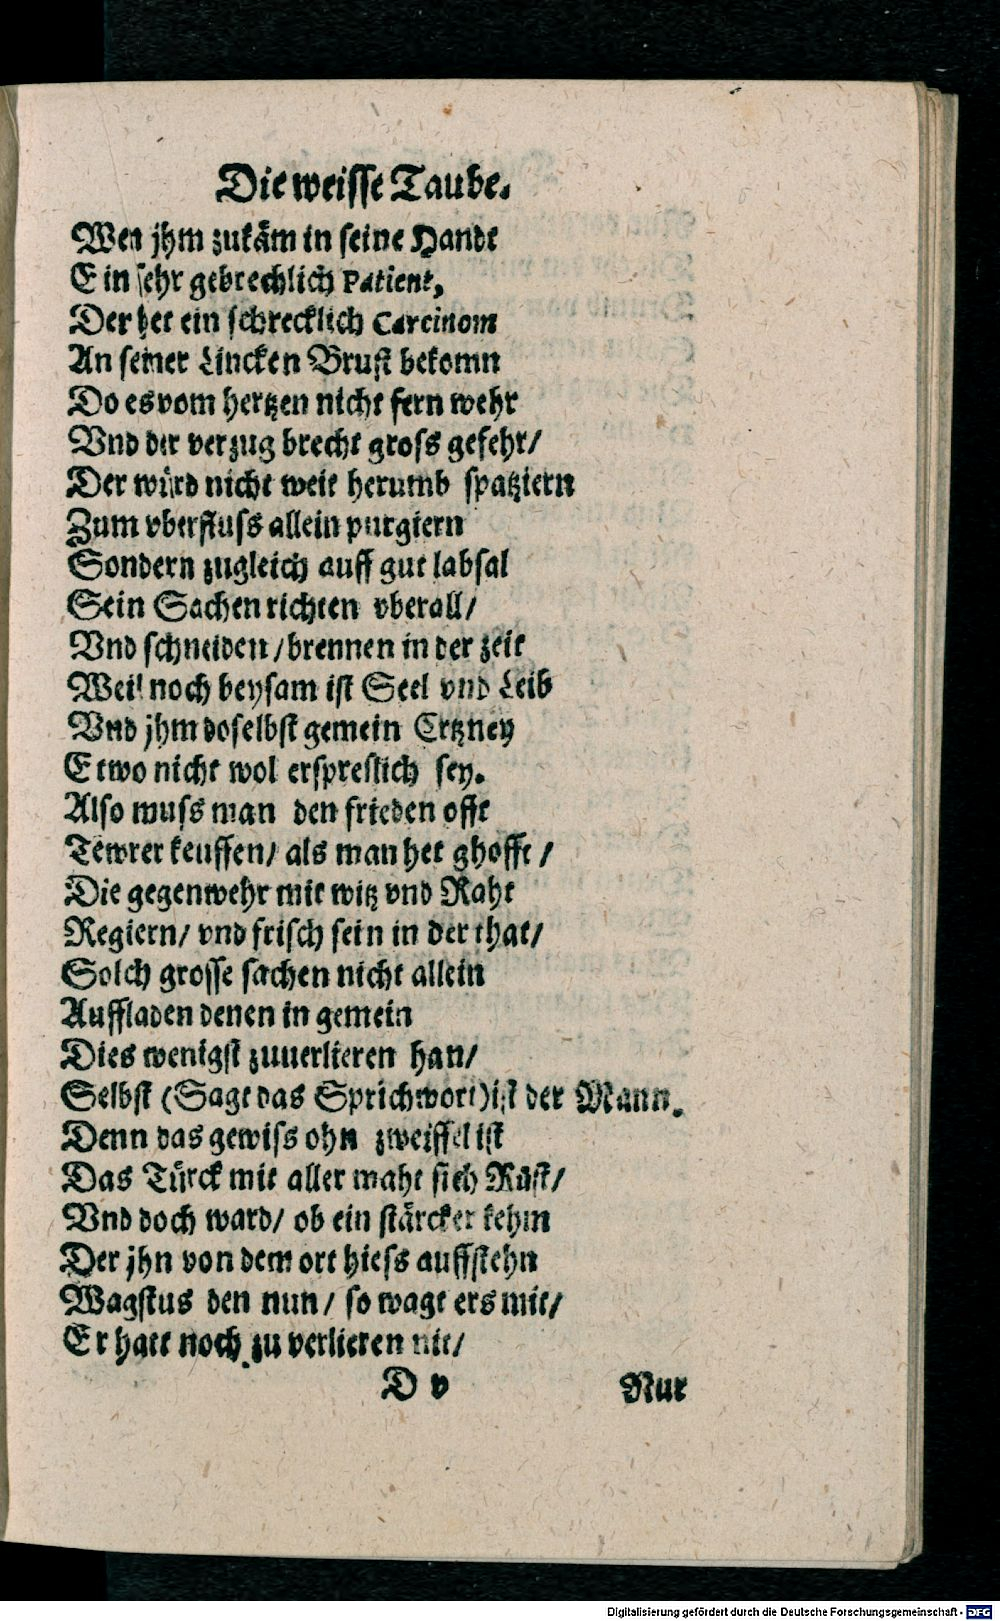 Die weisse Taube.
Wen jhm zukäm in seine Hande
Ein sehr gebrechlich Patient,
Der het ein schrecklich Carcinom
An seiner Lincken Brust bekomn
Do es vom hertzen nicht fern wehr
Vnd der verzug brecht gross gefehr/
Der würd nicht weit herumb spatziern
Zum vberfluss allein purgiern
Sondern zugleich auff gut labsal
Sein Sachen richten vberall/
Vnd schneiden/ brennen in der zeit
Weil noch beysam ist Seel vnd Leib
Vnd jhm doselbst gemein Ertzney
Etwo nicht wol erspreslich sey.
Also muss man den frieden offt
Tewrer keuffen/ als man het ghofft/
Die gegenwehr mit witz vnd Raht
Regiern/ vnd frisch sein in der that/
Solch grosse sachen nicht allein
Auffladen denen in gemein
Dies wenigst zuuerlieren han/
Selbst (Sagt das Sprichwort) ist der Mann.
Denn das gewiss ohn zweiffel ist
Das Türck mit aller maht sich Rüst/
Vnd doch ward/ ob ein stärcker kehm
Der jhn von dem ort hiess auffstehn
Wagstus den nun/ so wagt ers mit/
Er hatt noch zu verlieren nit/
D v Nur
Digitalisierung gefördert durch die Deutsche Forschungsgemeinschaft - DFG